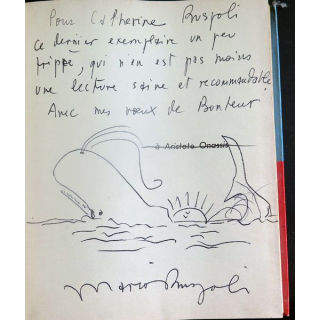 Pour Catherine Ruspoli
ce dernier exemplaire un peu
frippé, qui n'en est pas moins
une lecture saine et recommandable
Avec mes vœux de Bonheur
à Aristote Onassis
Mario Ruspoli